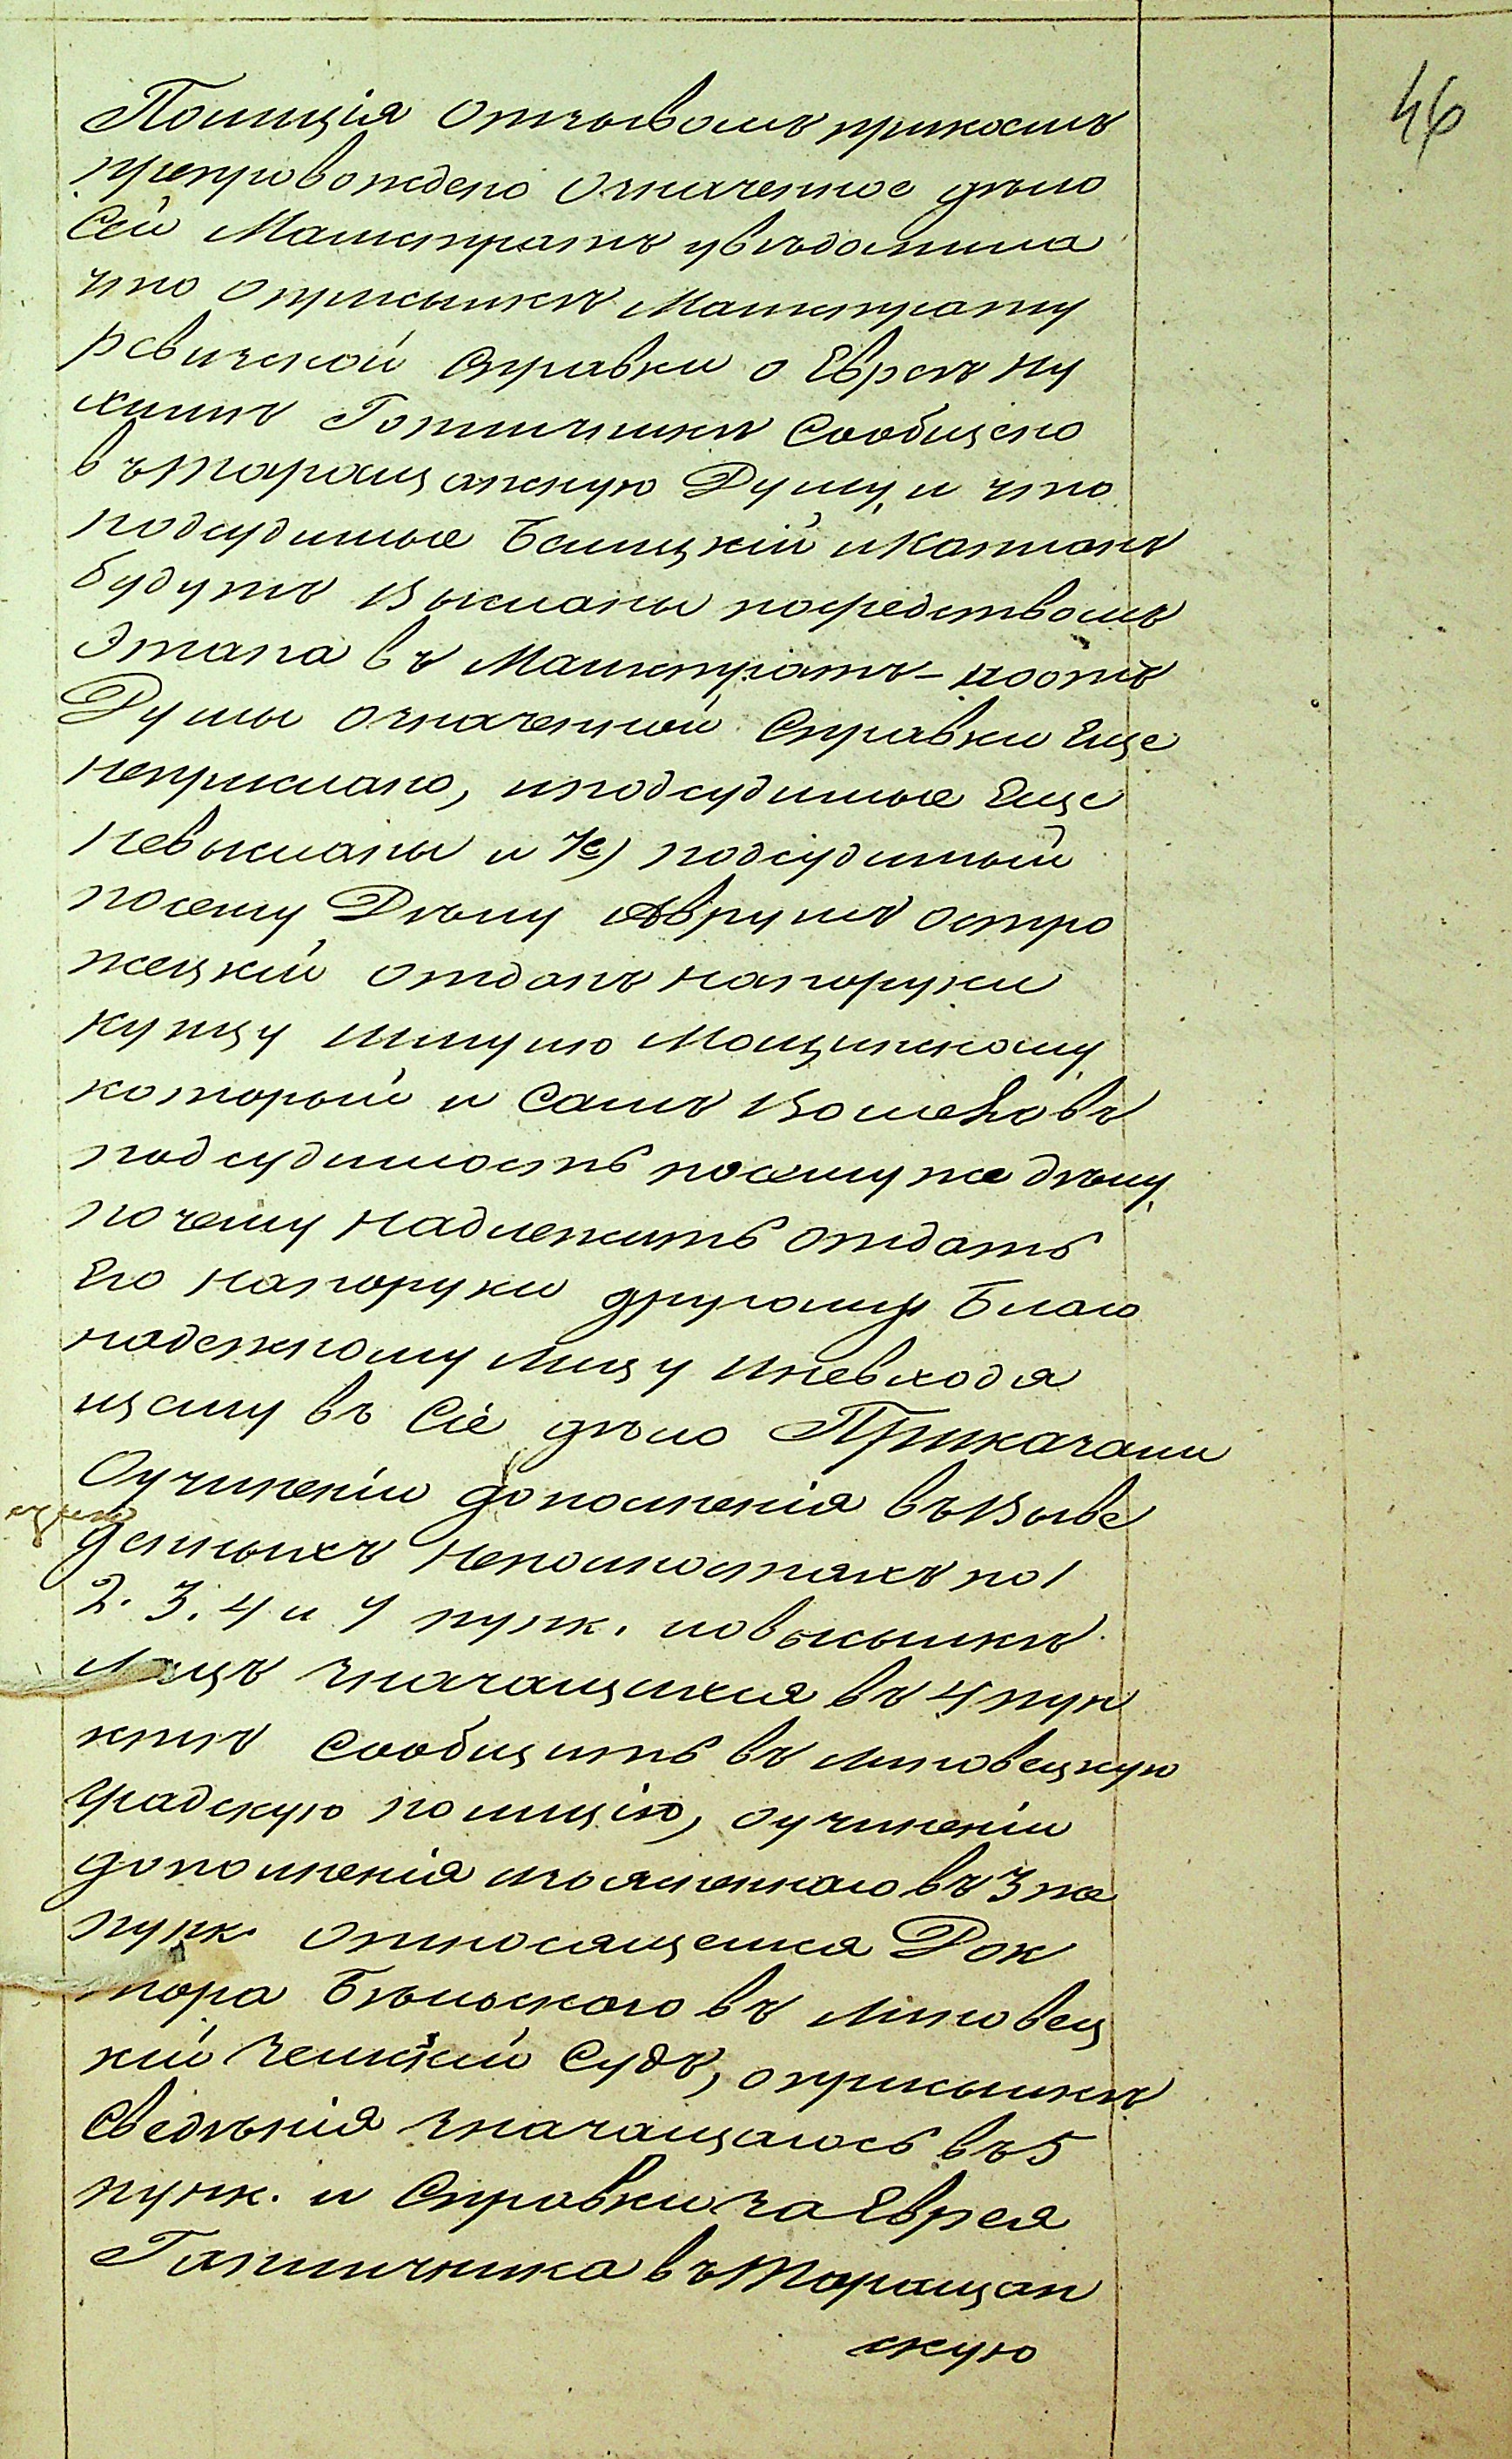 46
Полиція отзывомъ прикоимъ
препровождено означенное дѣло
сей Магистратъ увѣдомила
что оприсылкѣ Магистрату
ревизской справки о Евреѣ Ну
химѣ Готличникѣ сообщено
вътаращанскую Думу, и что
подсудимые Белицкій икатанъ
будутъ высланы посредствомъ
Этапа въ Магистратъ – ноотъ
Думы означенной справки еще
неприслано, иподсудимые еще
невысланы и 7е) подсудимый
посему Дѣлу Аврумъ остро
жецкій отданъ напоруки
купцу Шмулю Мощинскому,
который и самъ вошелъ въ
подсудимость посемуже дѣлу,
почему надлежитъ отдать
Его напоруки другому Благо
надежному лицу иневходя
щему въ сіе дѣло Приказали
Оучиненіи дополненія въвыве
денныхъ неполностяхъ по 1
2. 3. 4 и 7 пунк. иовысылкѣ
лицъ значащихся въ 4 пун
ктѣ сообщить въ Липовецкую
градскую полицію, оучиненіи
дополненія изъясненнаго въ 3 же
пунк. относящемся Док
тора Бѣльскаго въ Липовец
кій Земскій Судъ, оприсылкѣ
сведѣнія значащагось въ 5
пунк. и справки за Еврея
Гапличника въТаращан
скую